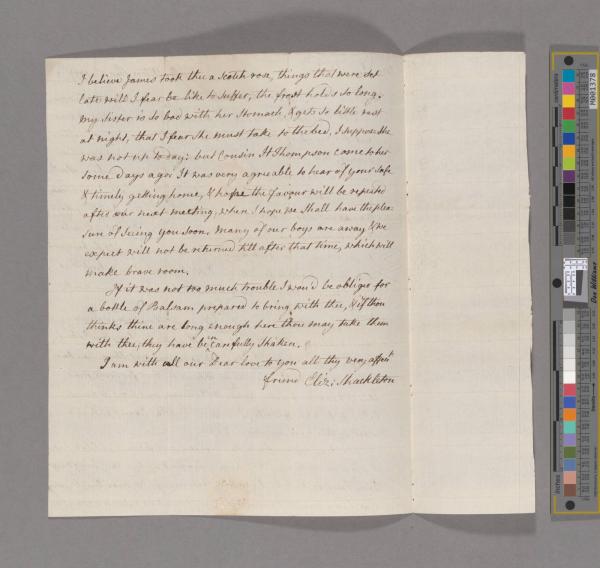 I believe James took thee a scotch rose, things that were set
late will I fear be like to suffer, the frost holds so long.
my Sister is so bad with her Stomach, & gets so little rest
at night, that I fear she must take to the bed, I suppose she
was not up to day: but Cousin H Thompson came to her
some days ago: It was very agreable to hear of your safe
& timely getting home, & hope the favour will be repeated
after our next meeting, when I hope we shall have the plea=
sure of seeing you soon. many of our boys are away & we
expect will not be returned till after that time, which will
make brave room.
If it was not too much trouble I wou'd be oblige for
a bottle of Balsam prepared to bring with thee, & if thou
thinks thine are long enough here thou may take them
with thee, they have been carefully shaken.
I am with all our Dear love to you all thy very affect
friend Eliz: Shackleton
centimetres
M001378
Don Williams
inches